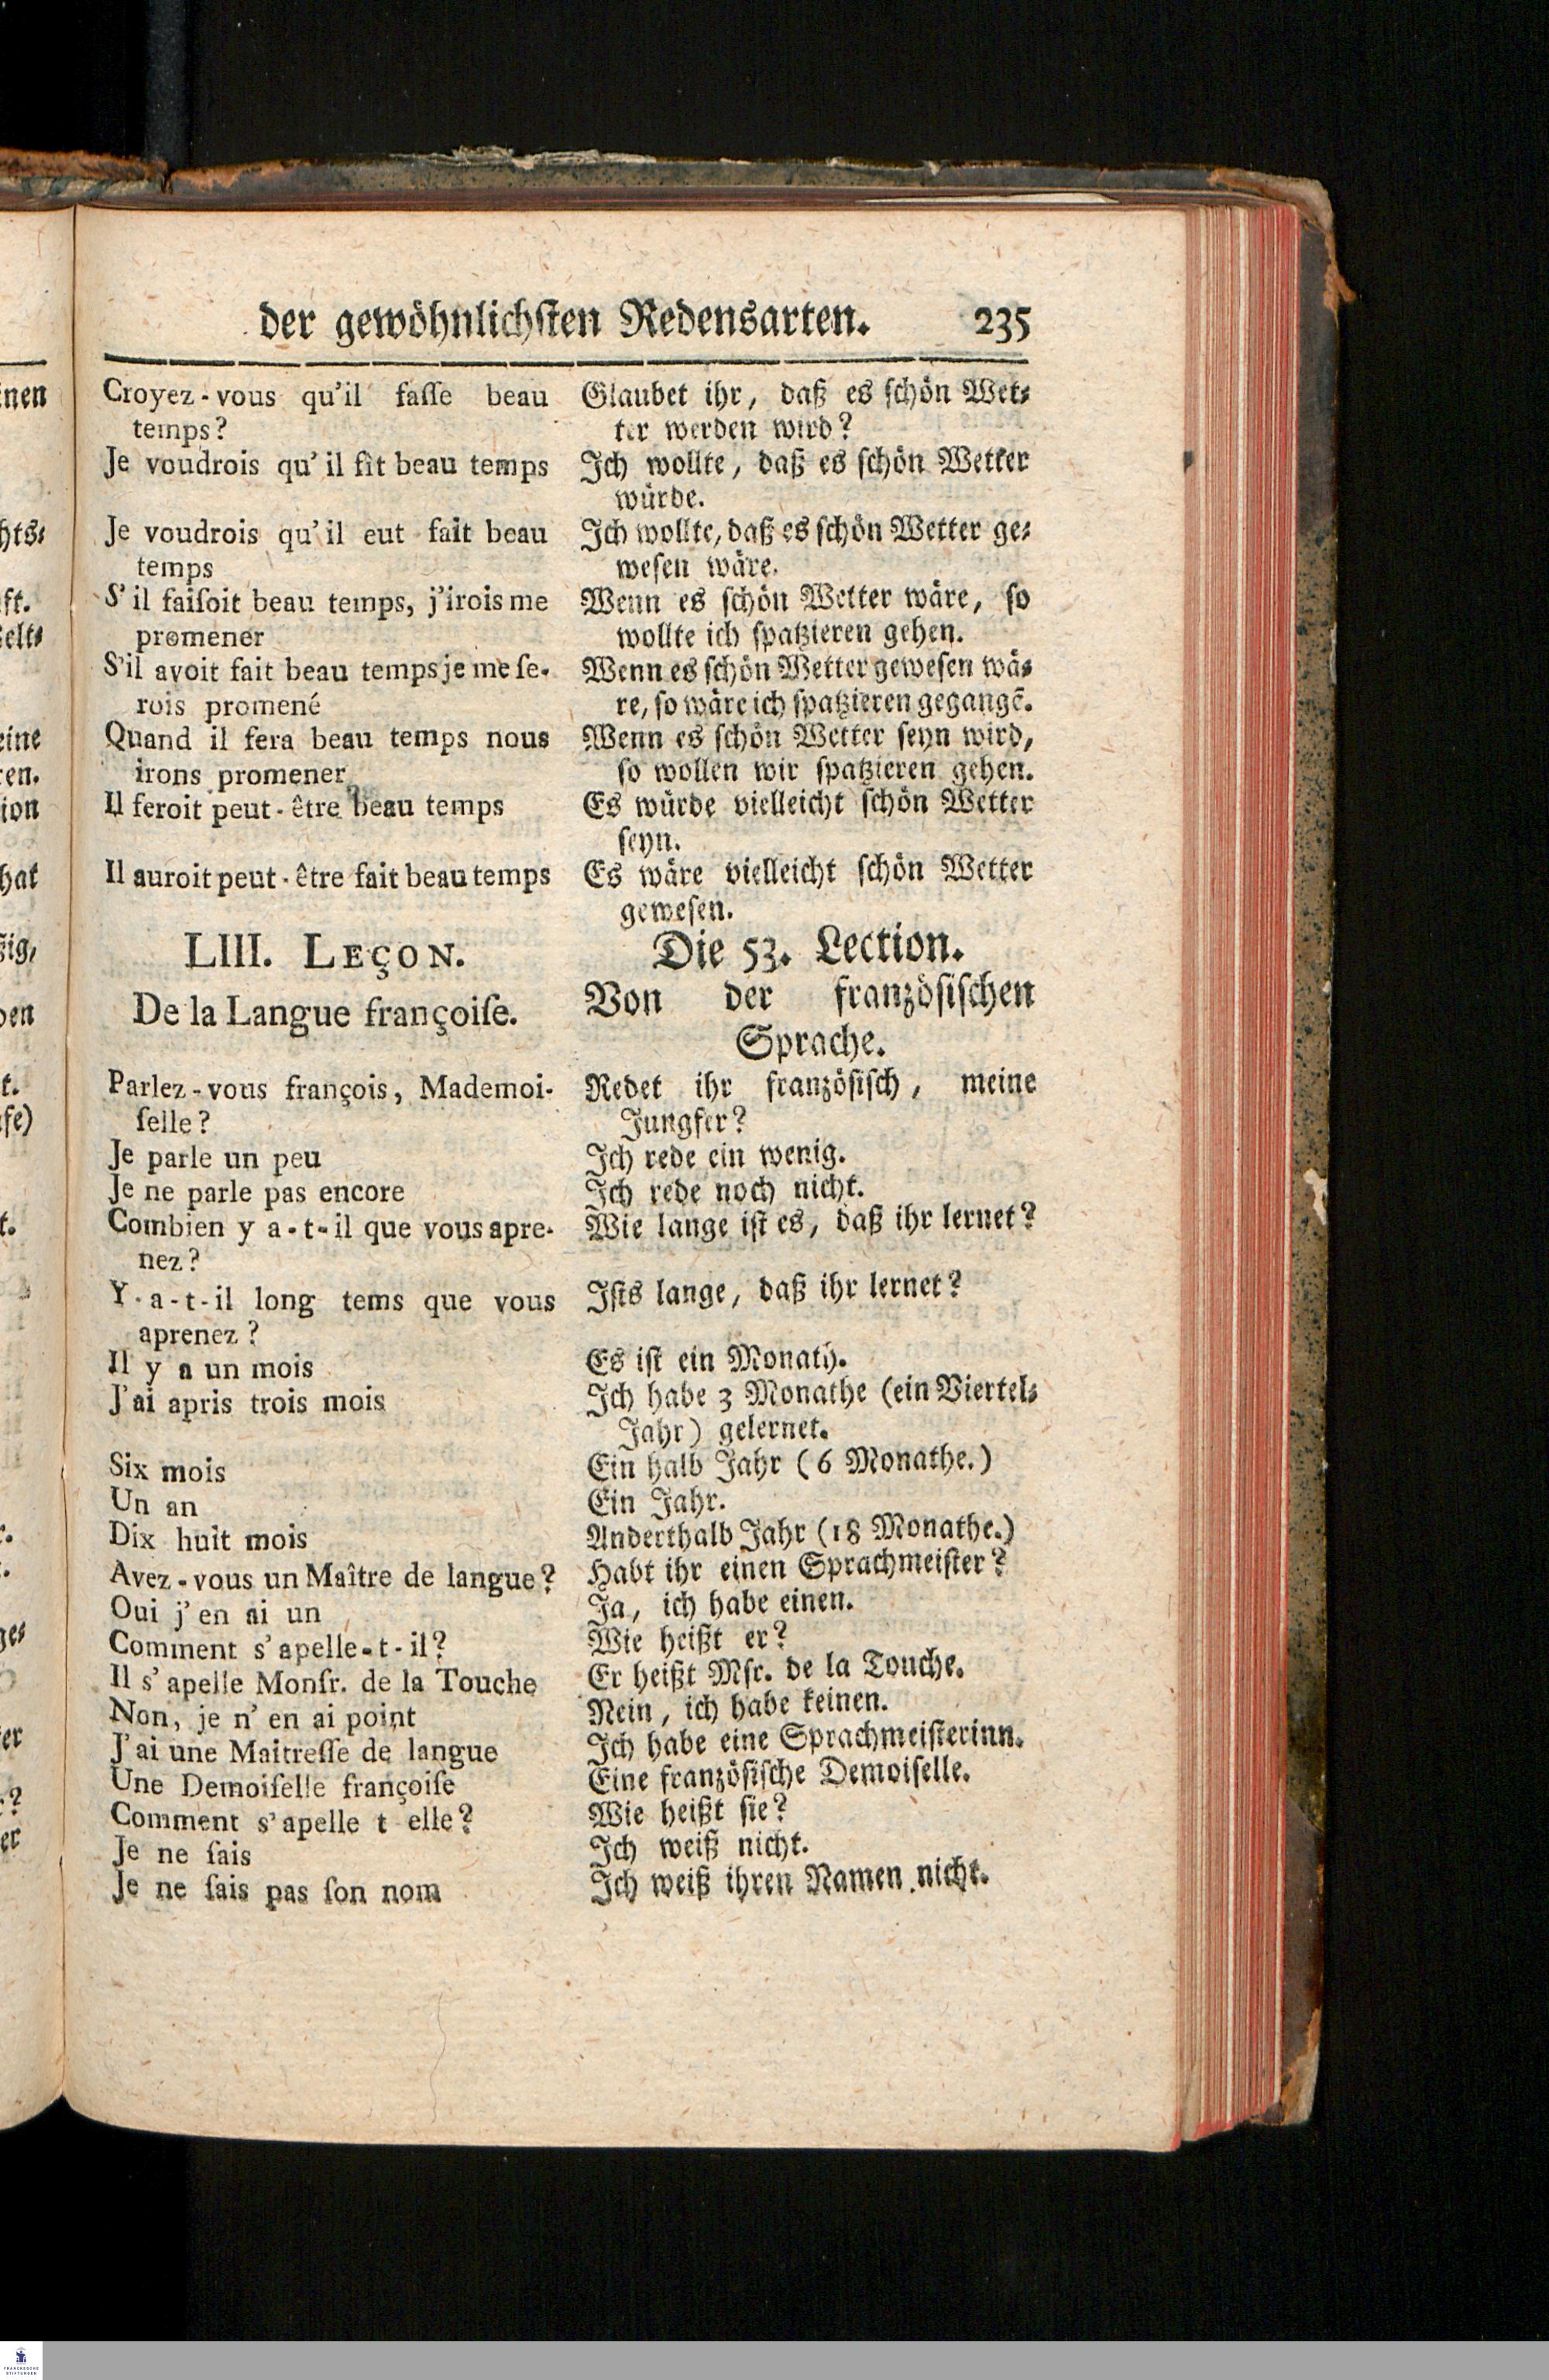 der gewöhnlichſten Redensarten. 235
Croyez-vous qu'il faſſe beau
temps?
Je voudrois qu'il fît beau temps
Je voudrois qu'il eut fait beau
temps
S'il faiſoit beau temps, j'irois me
promener
S'il avoit fait beau temps je me ſe-
rois promené
Quand il fera beau temps nous
irons promener
Il feroit peut-être beau temps
Il auroit peut-être fait beau temps
LIII. LEÇON.
De la Langue françoiſe.
Parlez-vous françois, Mademoi-
ſelle?
Je parle un peu
Je ne parle pas encore
Combien y a-t-il que vous apre-
nez?
Y-a-t-il long tems que vous
aprenez?
Il y a un mois
J'ai apris trois mois
Six mois
Un an
Dix huit mois
Avez-vous un Maître de langue?
Oui j'en ai un
Comment s'apelle-t-il?
Il s'apelle Monſr. de la Touche
Non, je n'en ai point
J'ai une Maitreſſe de langue
Une Demoiſelle françoiſe
Comment s'apelle t elle?
Je ne ſais
Je ne ſais pas ſon nom
Glaubet ihr, daß es ſchön Wet⸗
ter werden wird?
Ich wollte, daß es ſchön Wetter
würde.
Ich wollte, daß es ſchön Wetter ge⸗
weſen wäre.
Wenn es ſchön Wetter wäre, ſo
wollte ich ſpatzieren gehen.
Wenn es ſchön Wetter geweſen wä⸗
re, ſo wäre ich ſpatzieren gegangē.
Wenn es ſchön Wetter ſeyn wird,
ſo wollen wir ſpatzieren gehen.
Es würde vielleicht ſchön Wetter
ſeyn.
Es wäre vielleicht ſchön Wetter
geweſen.
Die 53. Lection.
Von der französiſchen
Sprache.
Redet ihr französiſch, meine
Jungfer?
Ich rede ein wenig.
Ich rede noch nicht.
Wie lange iſt es, daß ihr lernet?
Iſts lange, daß ihr lernet?
Es iſt ein Monath.
Ich habe 3 Monathe (ein Viertel⸗
Jahr) gelernet.
Ein halb Jahr (6 Monathe.)
Ein Jahr.
Anderthalb Jahr (18 Monathe.)
Habt ihr einen Sprachmeiſter?
Ja, ich habe einen.
Wie heißt er?
Er heißt Mſr. de la Touche.
Nein, ich habe keinen.
Ich habe eine Sprachmeiſterinn.
Eine französiſche Demoiſelle.
Wie heißt ſie?
Ich weiß nicht.
Ich weiß ihren Namen nicht.
FRANCKESCHE
STIFTUNGEN